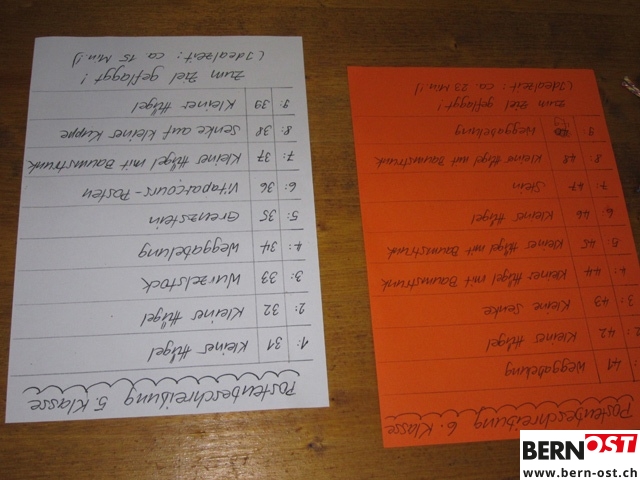 Postenbeschreibung 5. Klasse
1: 31 Kleiner Hügel
2: 32 Kleiner Hügel
3: 33 Wurzelstock
4: 34 Weggabelung
5: 35 Grenzstein
6: 36 Vitaparcours-Posten
7: 37 Kleiner Hügel mit Baumstrunk
8: 38 Senke auf kleiner Kuppe
9: 39 Kleiner Hügel
Zum Ziel geflaggt!
(Idealzeit: ca. 15 Min!)
Postenbeschreibung 6. Klasse
41 Weggabelung
2: 42 Kleiner Hügel
3: 43 Kleine Senke
4: 44 Kleiner Hügel mit Baumstrunk
5: 45 Kleiner Hügel mit Baumstrunk
6: 46 Kleiner Hügel
7: 47 Stein
8: 48 Kleiner Hügel mit Baumstrunk
9: Weggabelung
Zum Ziel geflaggt!
(Idealzeit: ca. 23 Min!)
BERNOST
www.bern-ost.ch